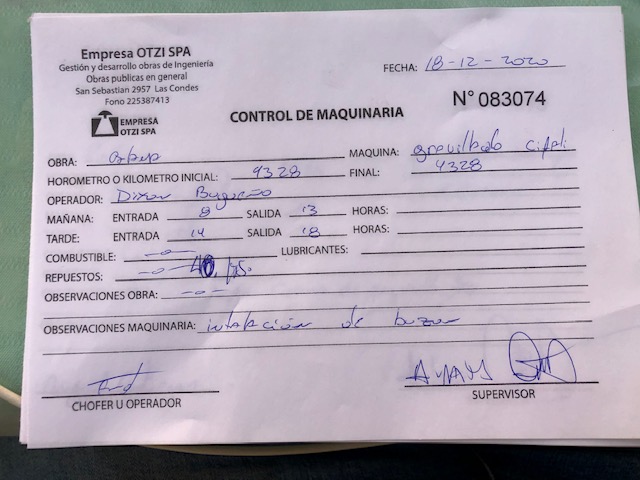 Empresa OTZI SPA
Gestión y desarrollo obras de Ingeniería
Obras publicas en general
San Sebastián 2957 Las Condes
Fono 225387413
EMPRESA
OTZI SPA
FECHA: 18-12-2020
CONTROL DE MAQUINARIA
N° 083074
OBRA: MAQUINA:
HOROMETRO O KILOMETRO INICIAL: 9328 FINAL: 9328
OPERADOR:
MAÑANA: ENTRADA 8 SALIDA 13 HORAS:
TARDE: ENTRADA 14 SALIDA 18 HORAS:
COMBUSTIBLE: -o- LUBRICANTES:
REPUESTOS: -o-
OBSERVACIONES OBRA: -o-
OBSERVACIONES MAQUINARIA: instalación de
CHOFER U OPERADOR
SUPERVISOR